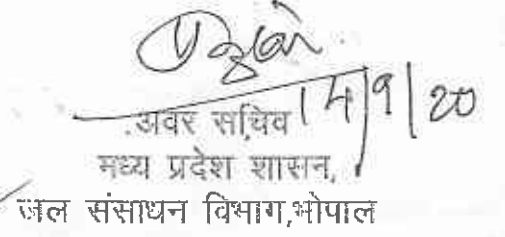 14/9/20
अवर सचिव
मध्य प्रदेश शासन,
जल संसाधन विभाग,भोपाल